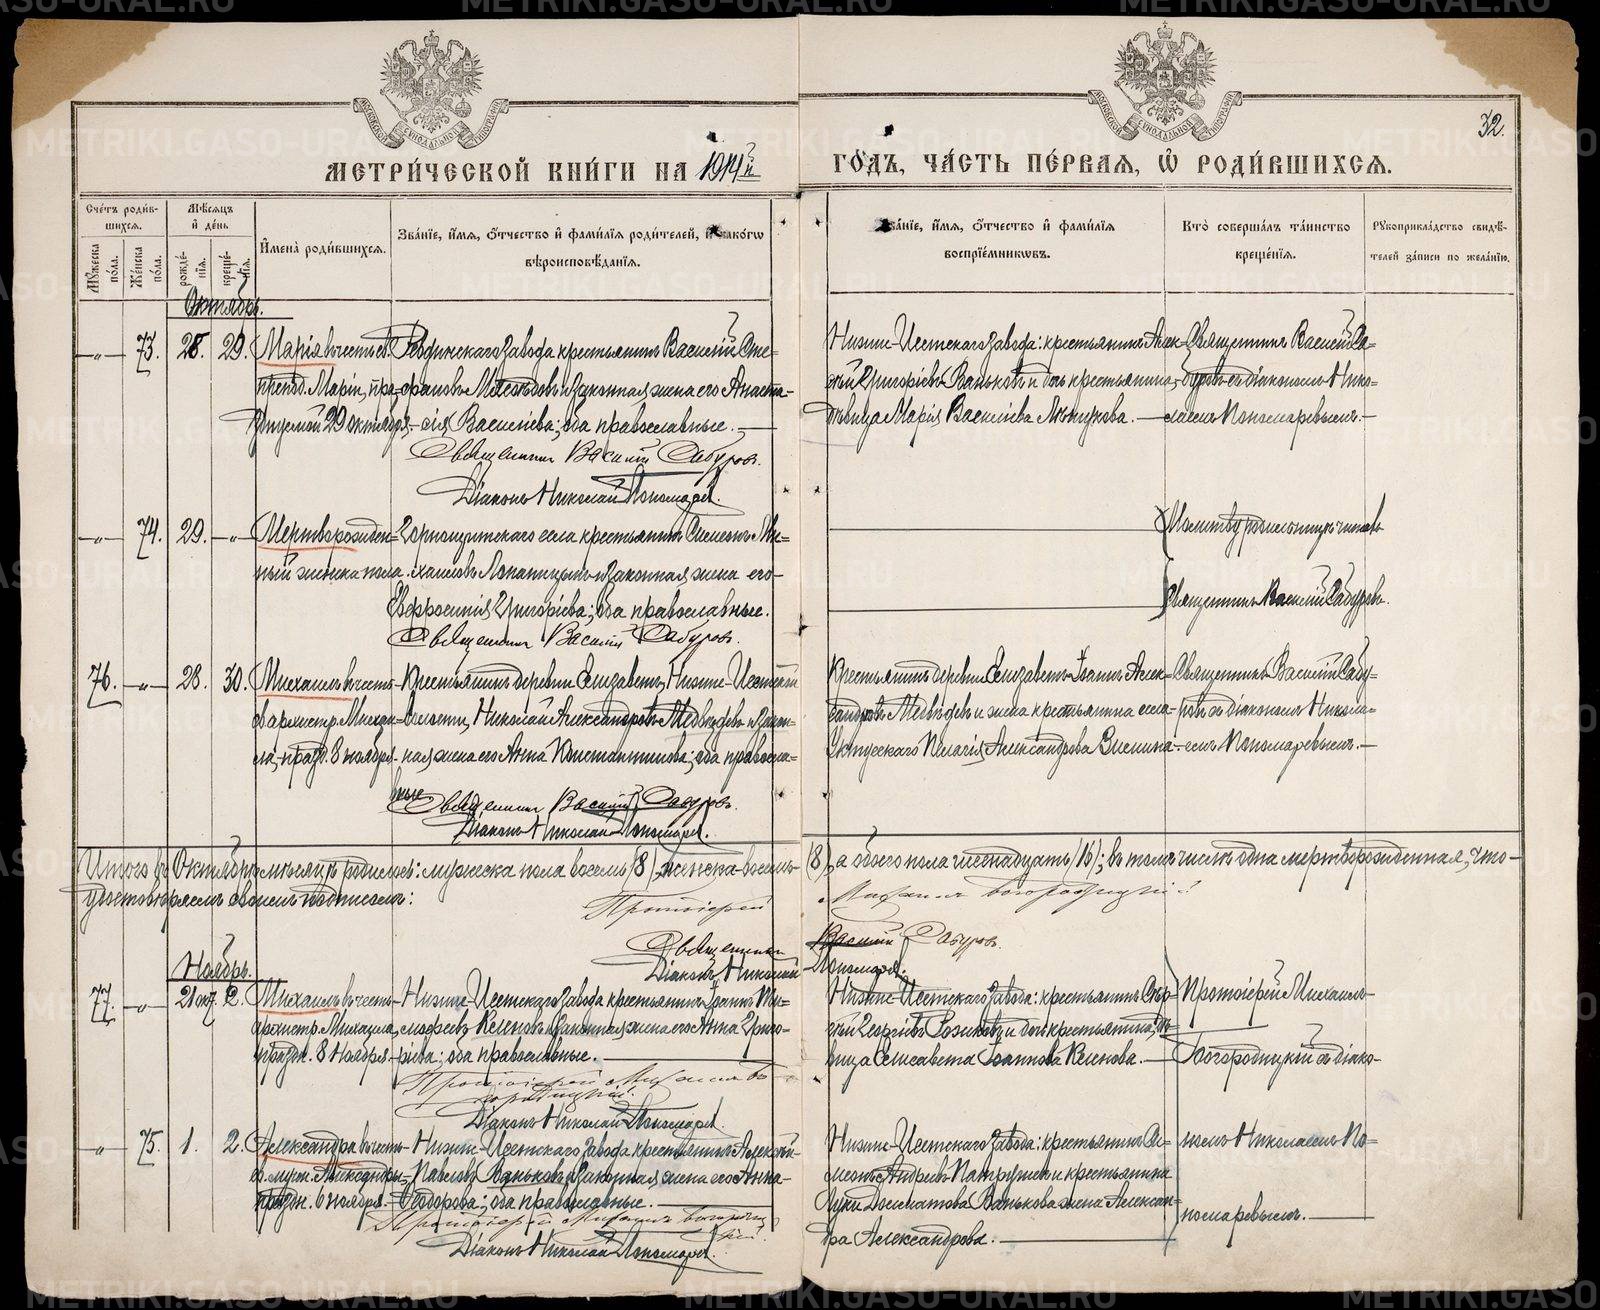 32.
МЕТРИ́ЧЕСКОЙ КНИ́ГИ НА 1914й ГО́ДЪ, ЧА́СТЬ ПЕ́РВАѦ, Ѡ҆ РОДИ́ВШИХСѦ.
Сче́тъ роди́в-
шихсѧ.
Мꙋ́жеска по́ла.
Же́нска по́ла.
Мѣ́сѧцъ и҆ де́нь
рожде́-
нїѧ.
креще́-
нїѧ.
И҆мена̀ роди́вшихсѧ.
Зва́нїе, и҆́мѧ, ѻ҆́тчество и҆ фами́лїѧ роди́телей, и҆ како́гѡ
вѣроисповѣ́данїѧ.
Зва́нїе, и҆́мѧ, ѻ҆́тчество и҆ фами́лїѧ
воспрїе́мниковъ.
Кто̀ соверша́лъ та́инство
креще́нїѧ.
Рꙋкоприкла́дство свидѣ́-
телей за́писи по жела́нїю.
Октябрь.
-„- 73. 28. 29. Марія въ честь св. Ревдинскаго завода крестьянинъ Василій Сте-
препод. Маріи, пра- фановъ и законная жена его Анаста-
29 октября. сія Василіева; оба православные.
Священникъ Василій Сабуровъ.
Діаконъ Николай Пономаревъ.
Нижне-Исетскаго завода: крестьянинъ Алек-
сѣй Григорієвъ Ваньковъ и дочь крестьянина
дѣвица Марія Василіева
Священникъ Василій Са-
буровъ съ діакономъ Нико-
лаемъ Пономаревымъ.
-„- 74. 29. -„- Мертворожден- Горнощитскаго села крестьянинъ Симеонъ Ми-
ный женска пола. хаиловъ и законная жена его
Евфросинія Григоріева; оба православные.
Священникъ Василій Сабуровъ.
Молитву родильницѣ читалъ
Священникъ Василій Сабуровъ.
76. -„- 28. 30. Михаилъ въ честь Крестьянинъ деревни Елизаветъ, Нижне-Исетской
св. архистр. Михаи- волости, Николай Александровъ Медвѣдевъ и закон-
ла, празд. 8 ноября. ная жена его Анна Константинова; оба правосла-
вные
Священникъ Василій Сабуровъ.
Діаконъ Николай Пономаревъ.
Крестьянинъ деревни Елизаветъ Іоаннъ Алек-
сандровъ Медвѣдевъ и жена крестьянина села
Уктусскаго Пелагія Александрова
Священникъ Василій Сабу-
ровъ съ діакономъ Никола-
емъ Пономаревымъ.
Итого въ Октябрѣ мѣсяцѣ родилось: мужеска пола восемь (8), женска-восемь (8), а обоего пола шестнадцать (16); въ томъ числѣ одна мертворожденная, что
удостовѣряемъ своимъ подписомъ: Протоіерей Михаилъ Богородицкій.
Священникъ Василій Сабуровъ.
Діаконъ Николай Пономаревъ.
Ноябрь.
77. -„- 21 окт. 2. Михаилъ въ честь Нижне-Исетскаго завода крестьянинъ Іоаннъ Ти-
архистр. Михаила, мофеевъ Келеновъ и законная жена его Анна Григо-
праздн. 8 Ноября. рієва; оба православные.
Протоіерей Михаилъ Бо-
городицкій.
Діаконъ Николай Пономаревъ.
Нижне-Исетскаго завода: крестьянинъ Сер-
гѣй Георгіевъ и дочь крестьянина, дѣ-
вица Елисавета Іоаннова Келенова.
Протоіерей Михаилъ
Богородицкій съ діако-
-„- 75. 1. 2. Александра въ честь Нижне-Исетскаго завода крестьянинъ Алексѣй
св. муч. Александры, Павловъ Ваньковъ и законная жена его Анна
праздн. 6 ноября. Ѳеодорова; оба православные.
Протоіерей Михаилъ Богородиц-
кій.
Діаконъ Николай Пономаревъ.
Нижне-Исетскаго завода: крестьянинъ Си-
меонъ Андреевъ Патрушевъ и крестьянина
Луки Ванькова жена Алексан-
дра Александрова.
номъ Николаемъ По-
номаревымъ.
METRIKI.GASO-URAL.RU